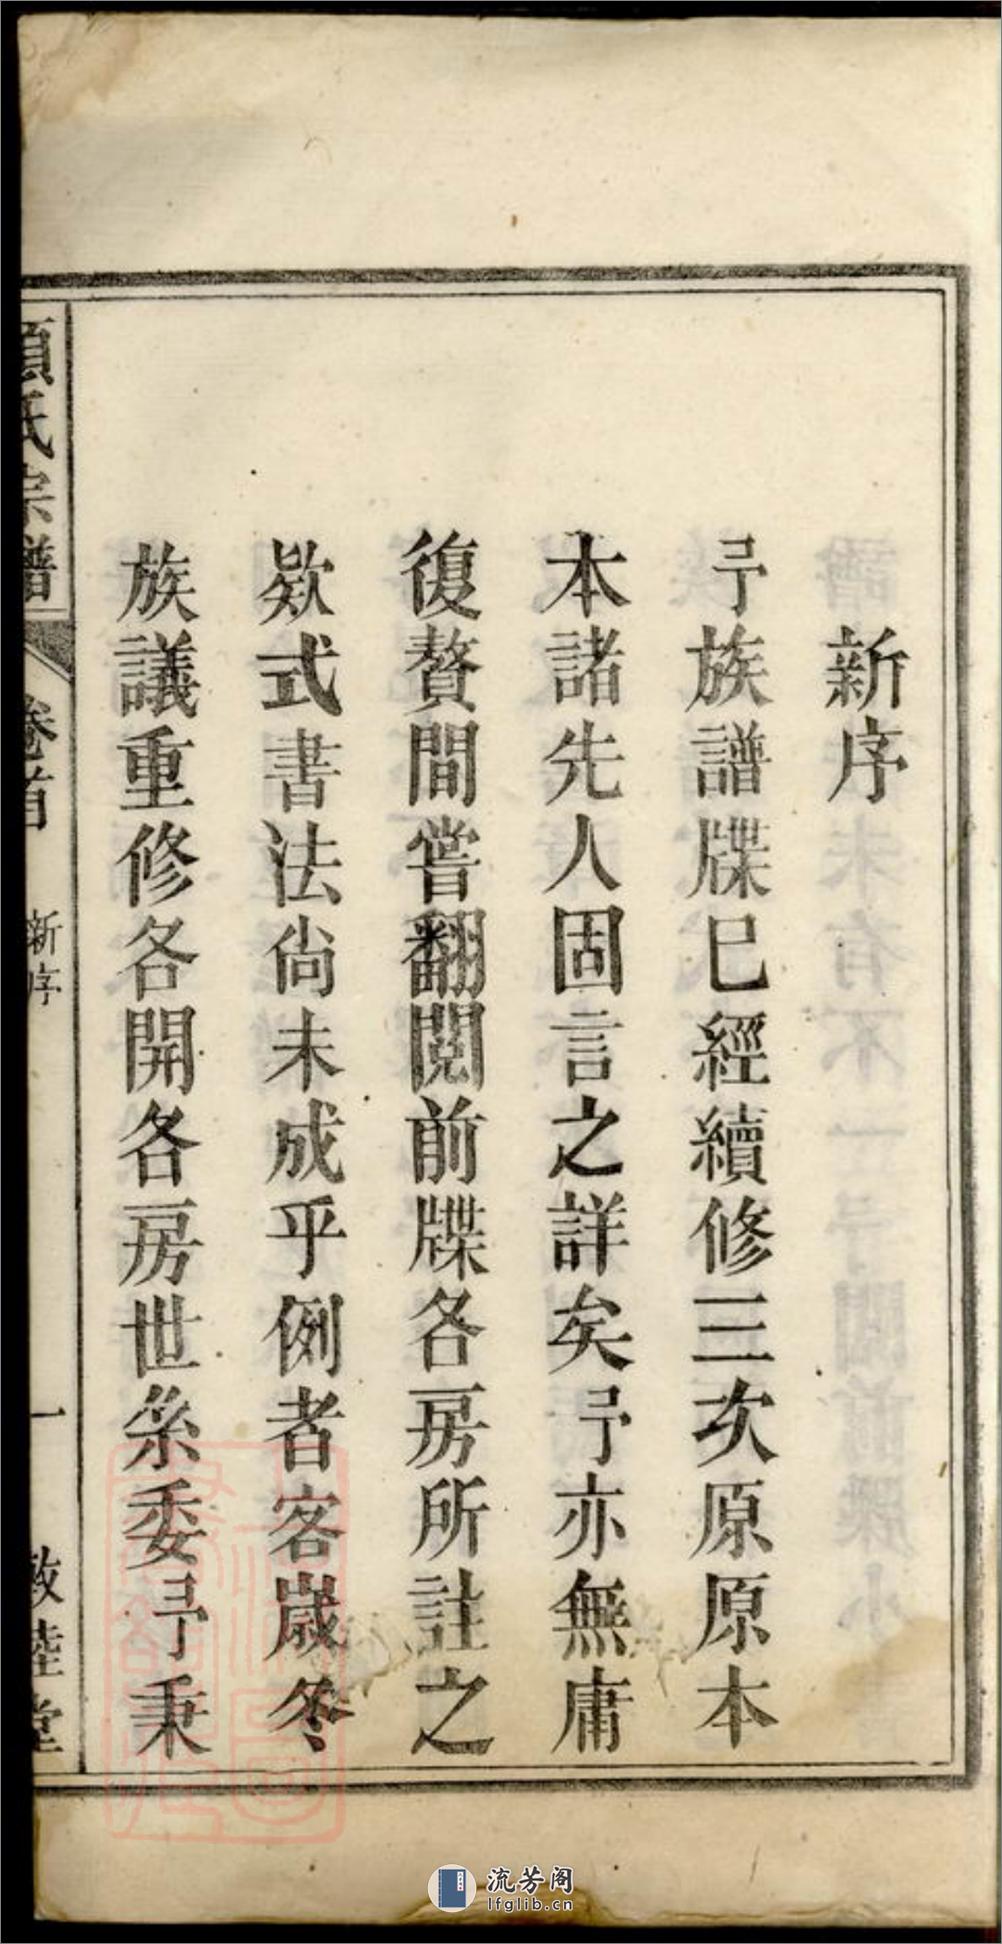 新序
予族譜牒已經續修三次原原本
本諸先人固言之詳矣予亦無庸
復贅間嘗翻閱前牒各房所註之
欵式書法尙未成乎例者客歲冬
族議重修各開各房世系委予秉
氏宗譜
卷首
新序
一
敦睦堂
流芳阁
lfglib.cn